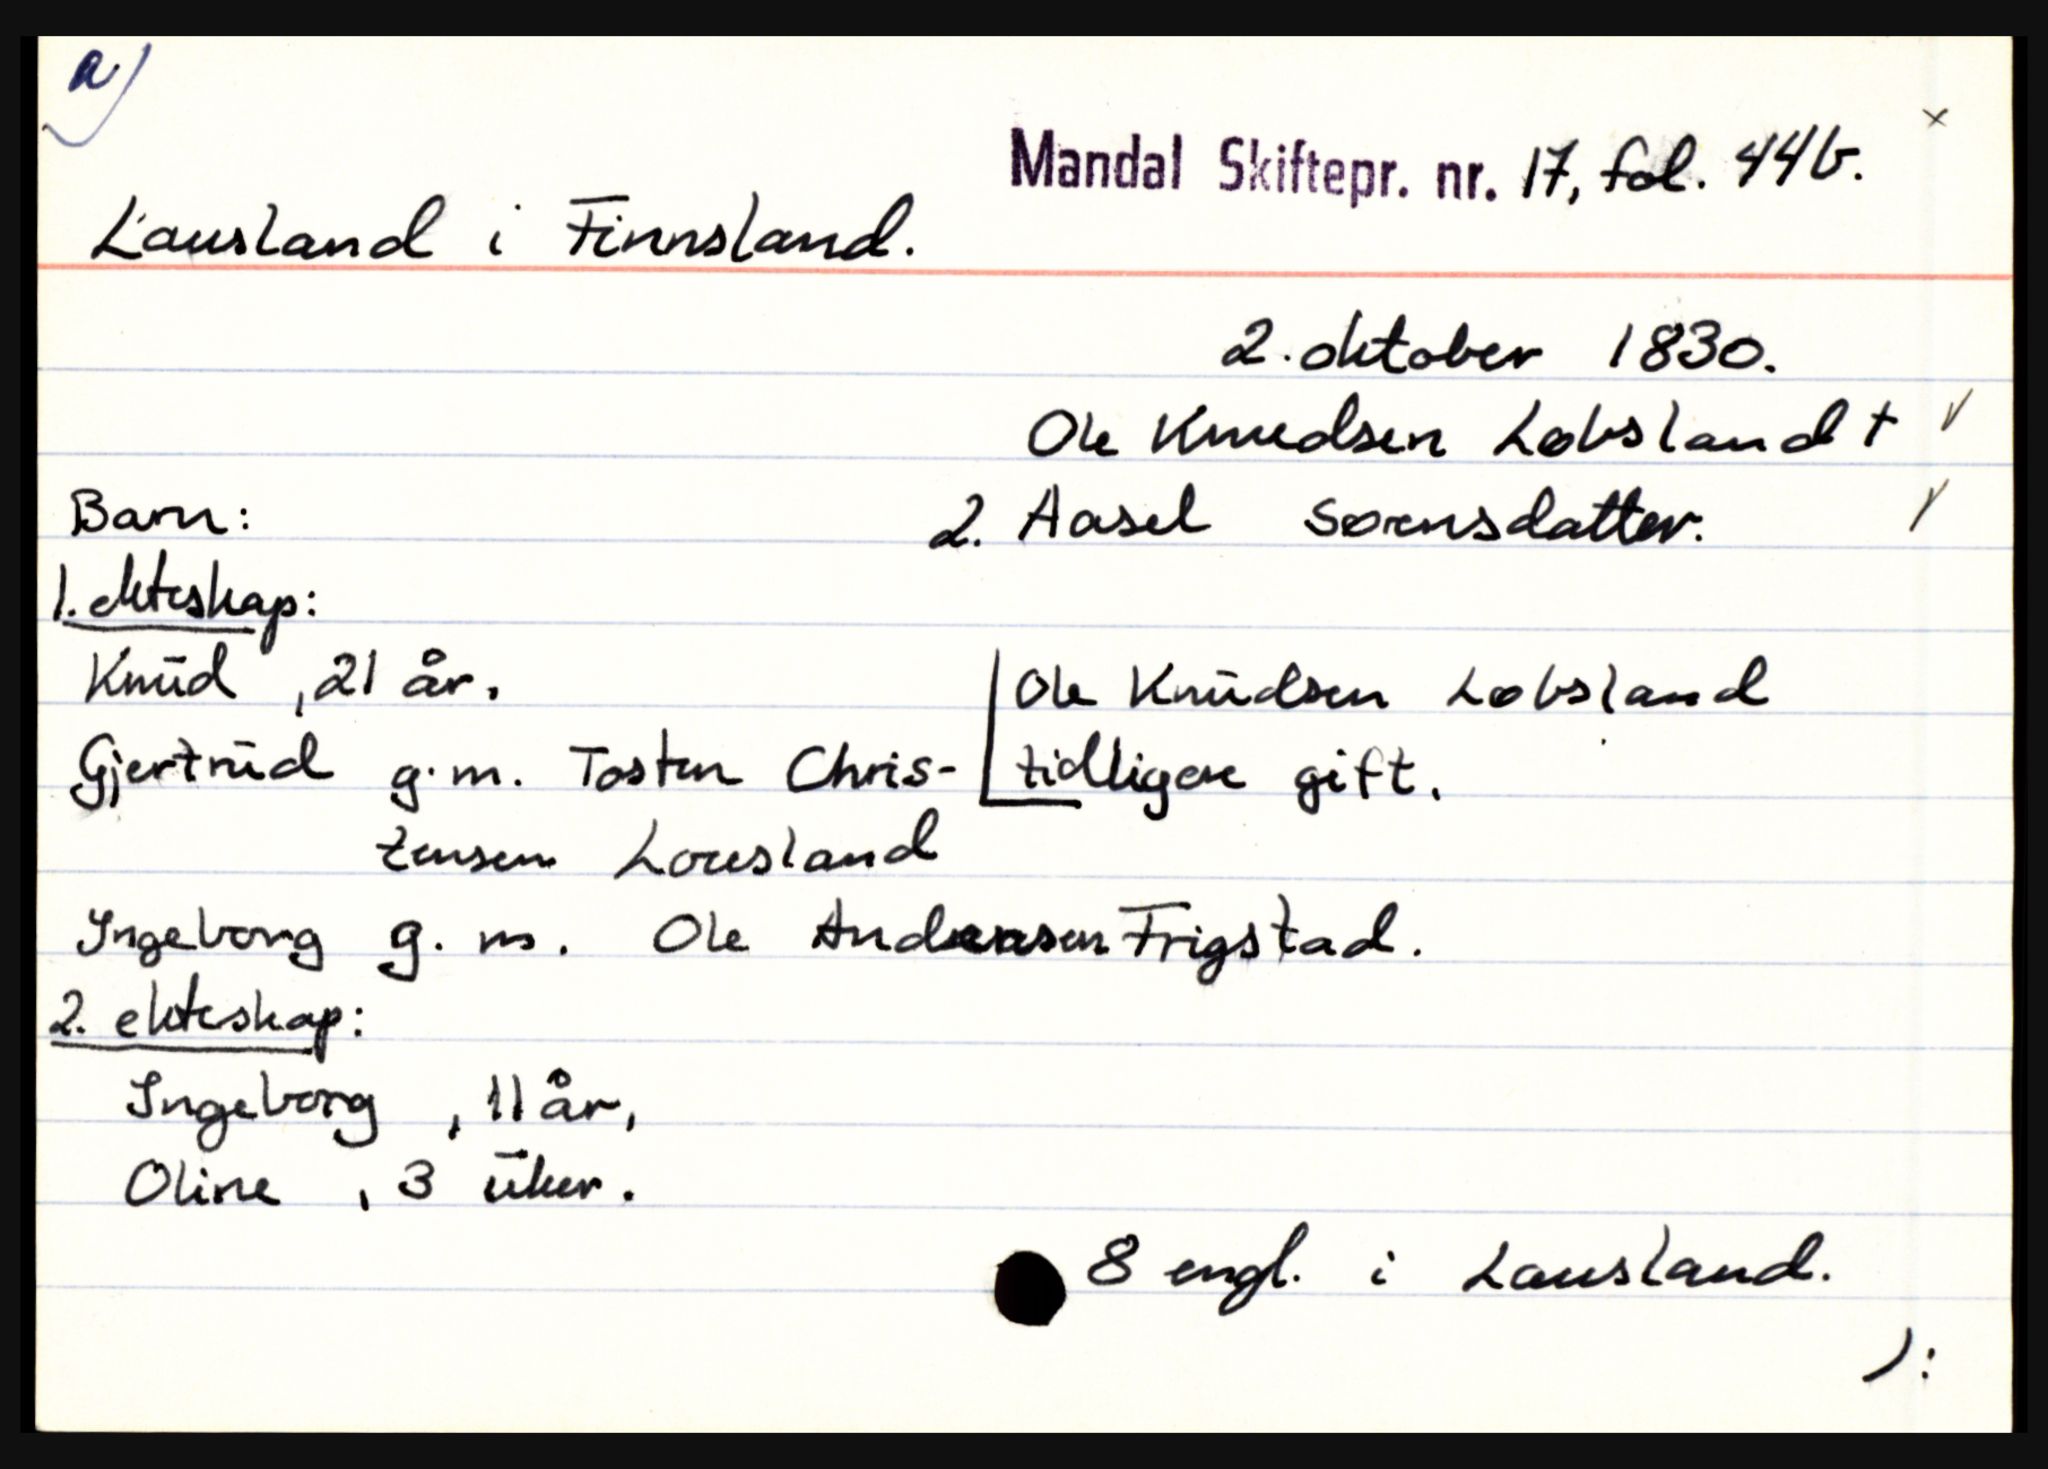 a)
x
Mandal Skiftepr. nr. 17, fol. 44b.
Lausland i Finnsland.
2. oktober 1830.
Ole Knudsen Løbsland +
Barn:
2. Aasel Sørensdatter.
1. ekteskap:
Knūd , 21 år.
Ole Knūdsen Løbsland
Gjertrūd g.m. Tosten Chris-
tidligere gift.
tensen Lousland
Ingeborg g. m. Ole Andersen Frigstad.
2. ekteskap:
Ingeborg , 11 år,
Oline , 3 ūker.
8 engl. i Lausland.
):